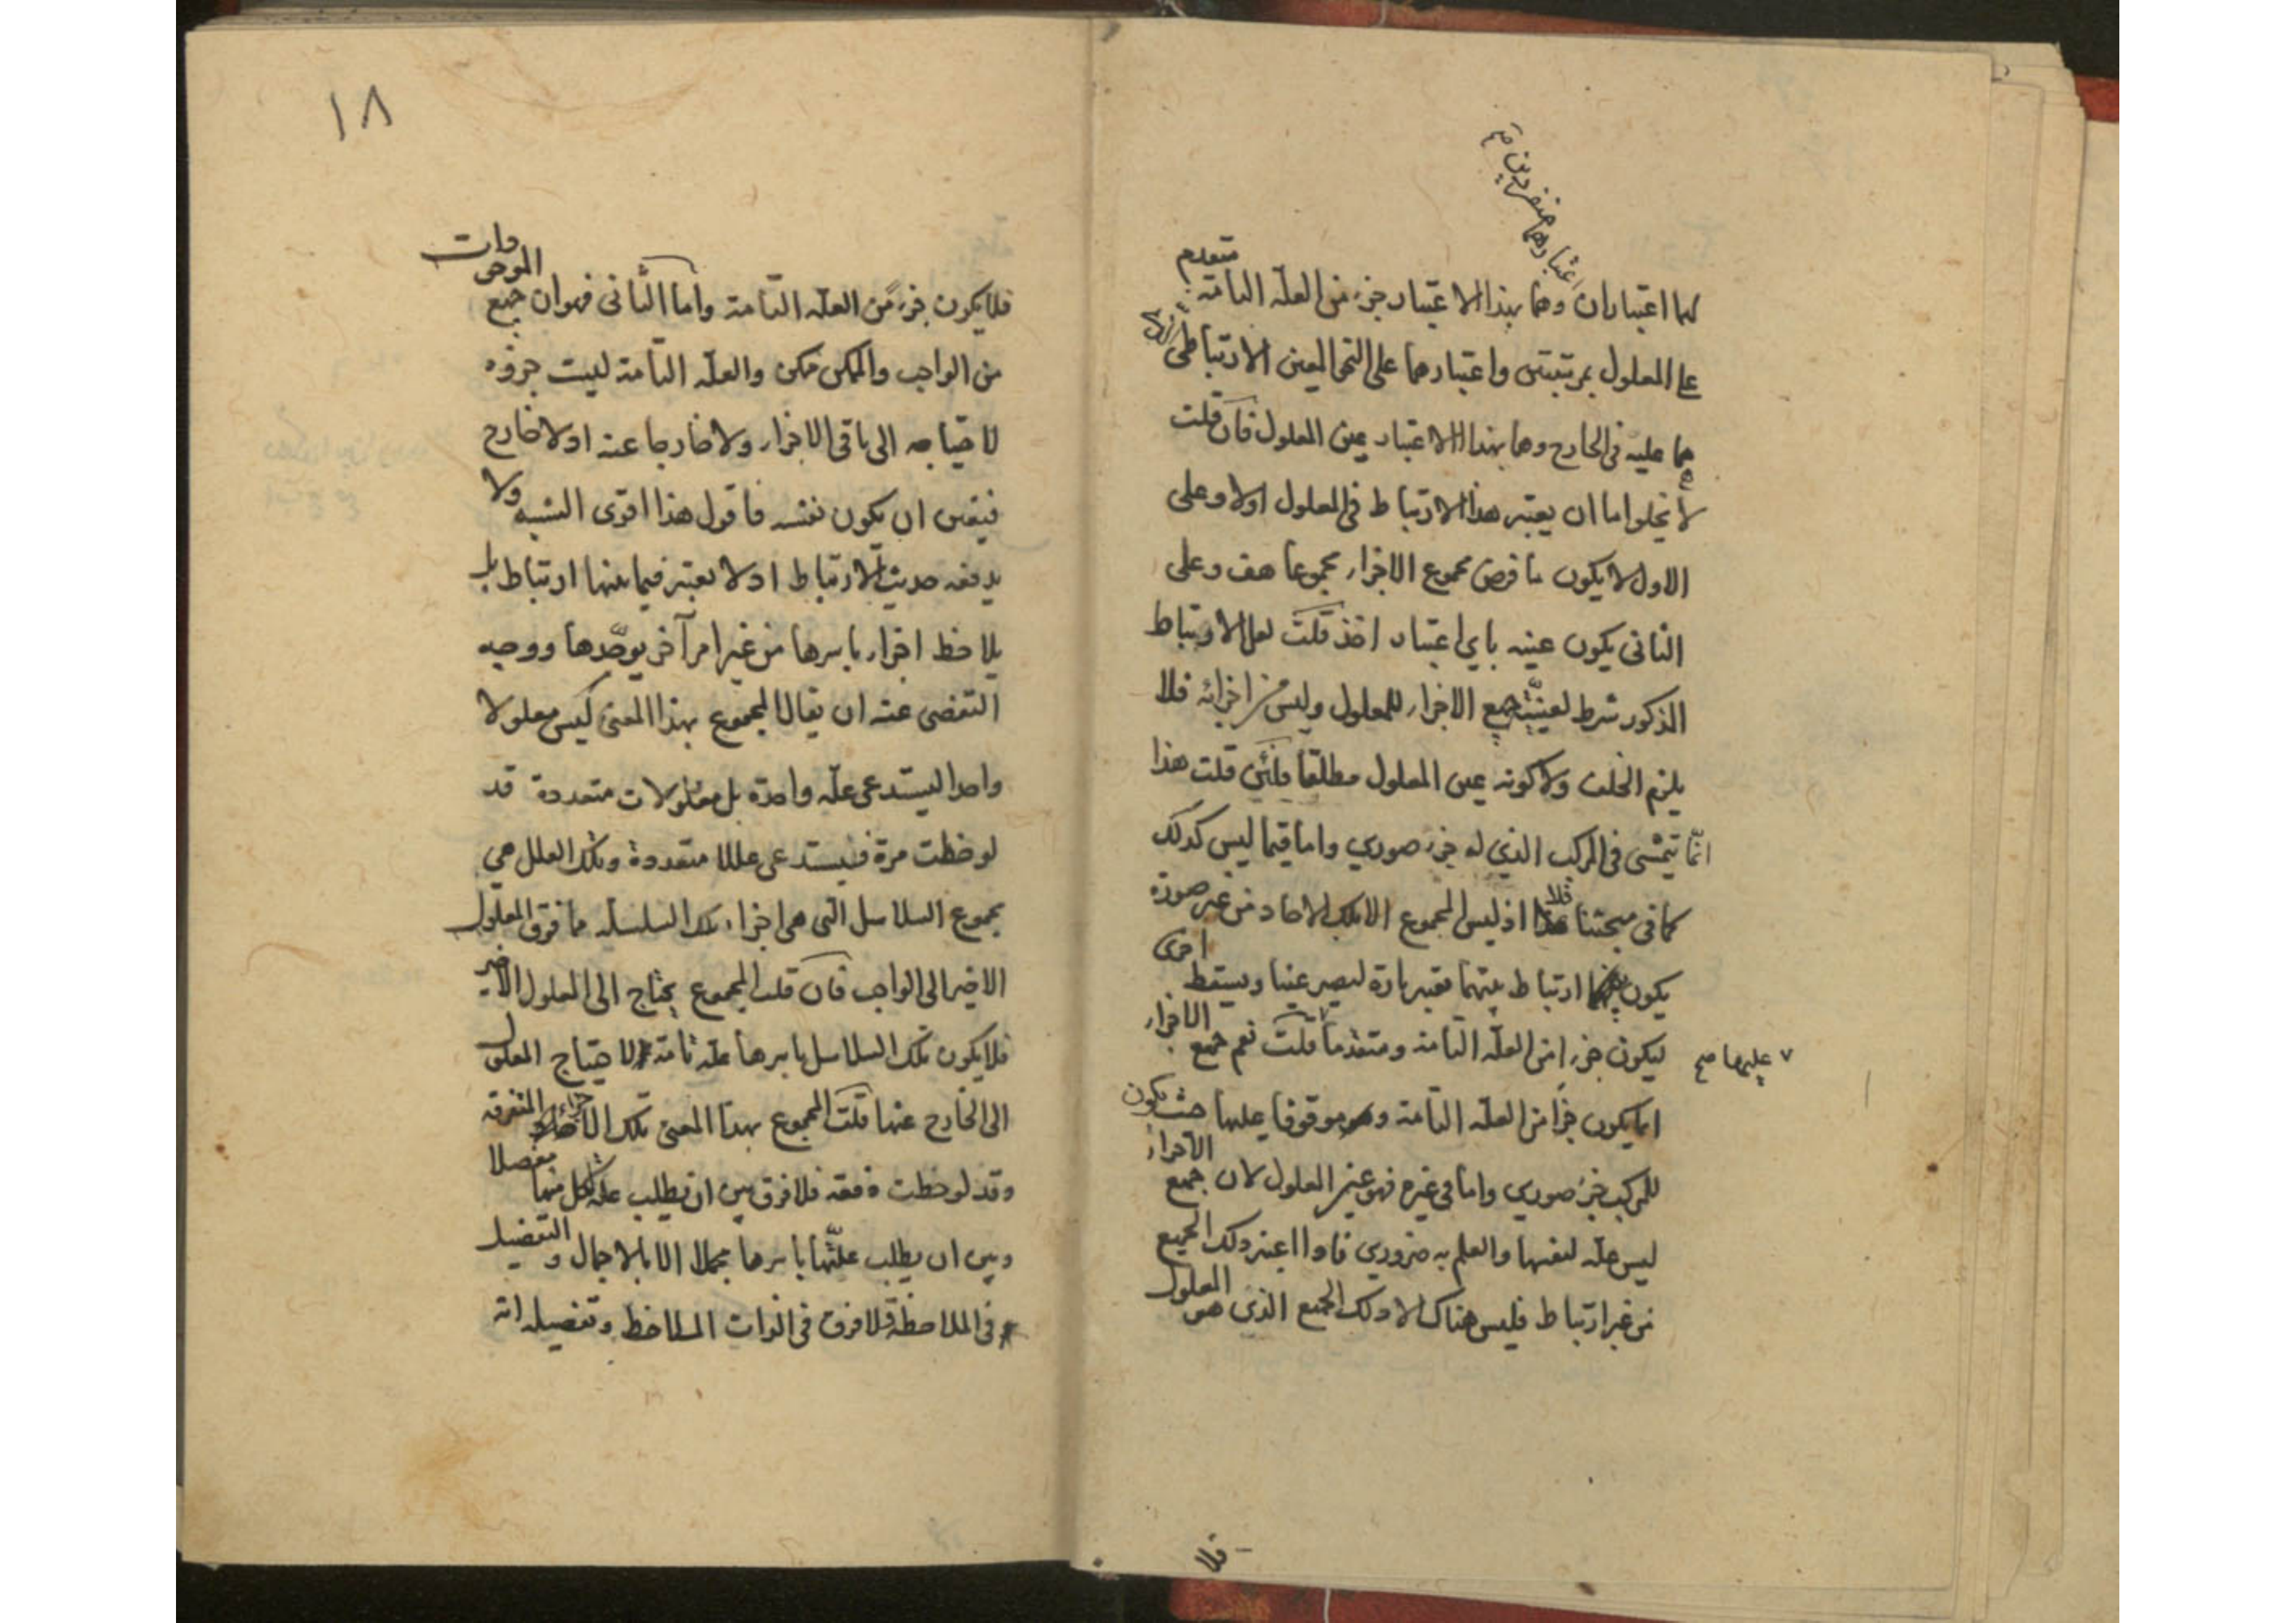 اعتبارهما منفردين صح
لهما اعتباران وهما بهذا الاعتبار جزء من العلة التامة متقدم
على المعلول بمرتبتين واعتبارهما على النحو المعين الارتباطي
هما عليه في الخارج وهما بهذا الاعتبار عين المعلول فان قلت
لا يخلوا اما ان يعتبر هذا الارتباط في المعلول اولا وعلى
الاول لا يكون ما فرض مجموع الاجزاء مجموعا هف وعلى
الثاني يكون عينه باي اعتبار اخذ قلت لعل الارتباط
المذكور شرط لعينية جميع الاجزاء للمعلول وليس من اجزائه فلا
يلزم الخلف ولا كونه عين المعلول مطلقا فلئن قلت هذا
انما يتمشى في المركب الذي له جزء صوري واما فيما ليس كذلك
كما في مبحثنا فلا اذ ليس المجموع الا تلك الاحاد من غير صورة
يكون ارتباط بينهما معتبر تارة ليصير عينا ويسقط اخرى
ليكون جزءا من العلة التامة ومتقدما قلت نعم جميع الاجزاء
عليها صح
انما يكون جزأ من العلة التامة وهو موقوفا عليها حيث يكون
للمركب جزء صوري واما في غيره فهو عين المعلول لان جميع الاجزاء
ليس علة لنفسها والعلم به ضروري فاذا اعتبر ذلك الجميع
من غير ارتباط فليس هناك الا ذلك الجميع الذي هو المعلول
فلا
١٨
فلا يكون جزء من العلة التامة واما الثاني فهو ان جميع الموجودات
من الواجب والممكن ممكن والعلة التامة ليست جزؤه
لاحتياجه الى باقي الاجزاء ولا خارجا عنه اذ لا خارج
فيتعين ان يكون نفسه فاقول هذا اقوى الشبه ولا
يدفعه حديث الارتباط اذ لا يعتبر فيما بينها ارتباط بل
يلاحظ اجزاء باسرها من غير امر آخر يوحدها ووجه
التفصى عنه ان يقال المجموع بهذا المعنى ليس معلولا
واحدا ليستدعى علة واحدة بل معلولات متعددة قد
لوحظت مرة فيستدعى عللا متعددة وتلك العلل هي
مجموع السلاسل التى هى اجزاء تلك السلسلة مما فوق المعلول
الاخير الى الواجب فان قلت المجموع يحتاج الى المعلول الاخير
فلا يكون تلك السلاسل باسرها علة تامة لاحتياج المعلول
الى الخارج عنها قلت المجموع بهذا المعنى تلك المتفرقة
وقد لوحظت دفعة فلا فرق بين ان يطلب علة لكل منها مفصلا
وبين ان يطلب علتها باسرها مجملا الا بالاجمال والتفصيل
في الملاحظة فلا فرق في الذوات الملاحظ وتفصيله انه